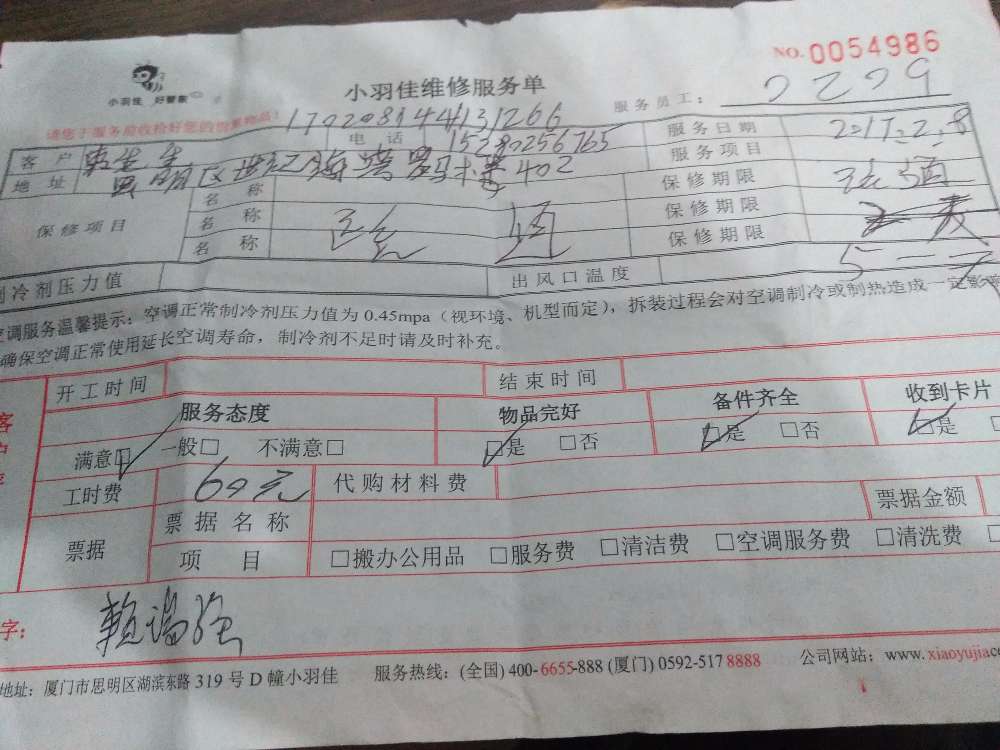 NO. 0054986
小羽佳 好管家
小羽佳维修服务单
服务员工: 0209
请您于服务前收拾好您的贵重物品!
170208144131266
客户 电话 15280256765 服务日期 2017.2.8
地址 区 402 服务项目
保修项目 名称 保修期限
名称 保修期限
名称 保修期限
制冷剂压力值 出风口温度
空调服务温馨提示: 空调正常制冷剂压力值为 0.45mpa (视环境、机型而定), 拆装过程会对空调制冷或制热造成一定影响
确保空调正常使用延长空调寿命, 制冷剂不足时请及时补充。
开工时间 结束时间
服务态度 物品完好 备件齐全 收到卡片
满意□ 一般□ 不满意□ □是 □否 □是 □否 □是
工时费 60元 代购材料费
票据 票据名称 票据金额
项目 □搬办公用品 □服务费 □清洁费 □空调服务费 □清洗费
字:
地址: 厦门市思明区湖滨东路 319 号 D 幢小羽佳 服务热线: (全国) 400-6655-888 (厦门) 0592-5178888 公司网站: www.xiaoyujia